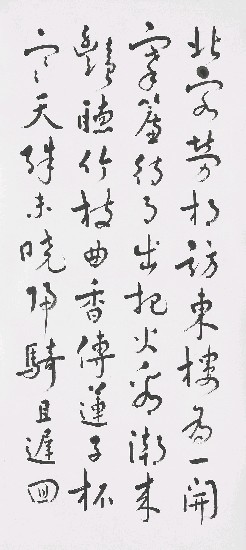 北客勞相訪東樓為一開
褰簾待月出把火看潮來
艷聽竹枝曲香傳蓮子杯
寒天殊未曉歸騎且遲回